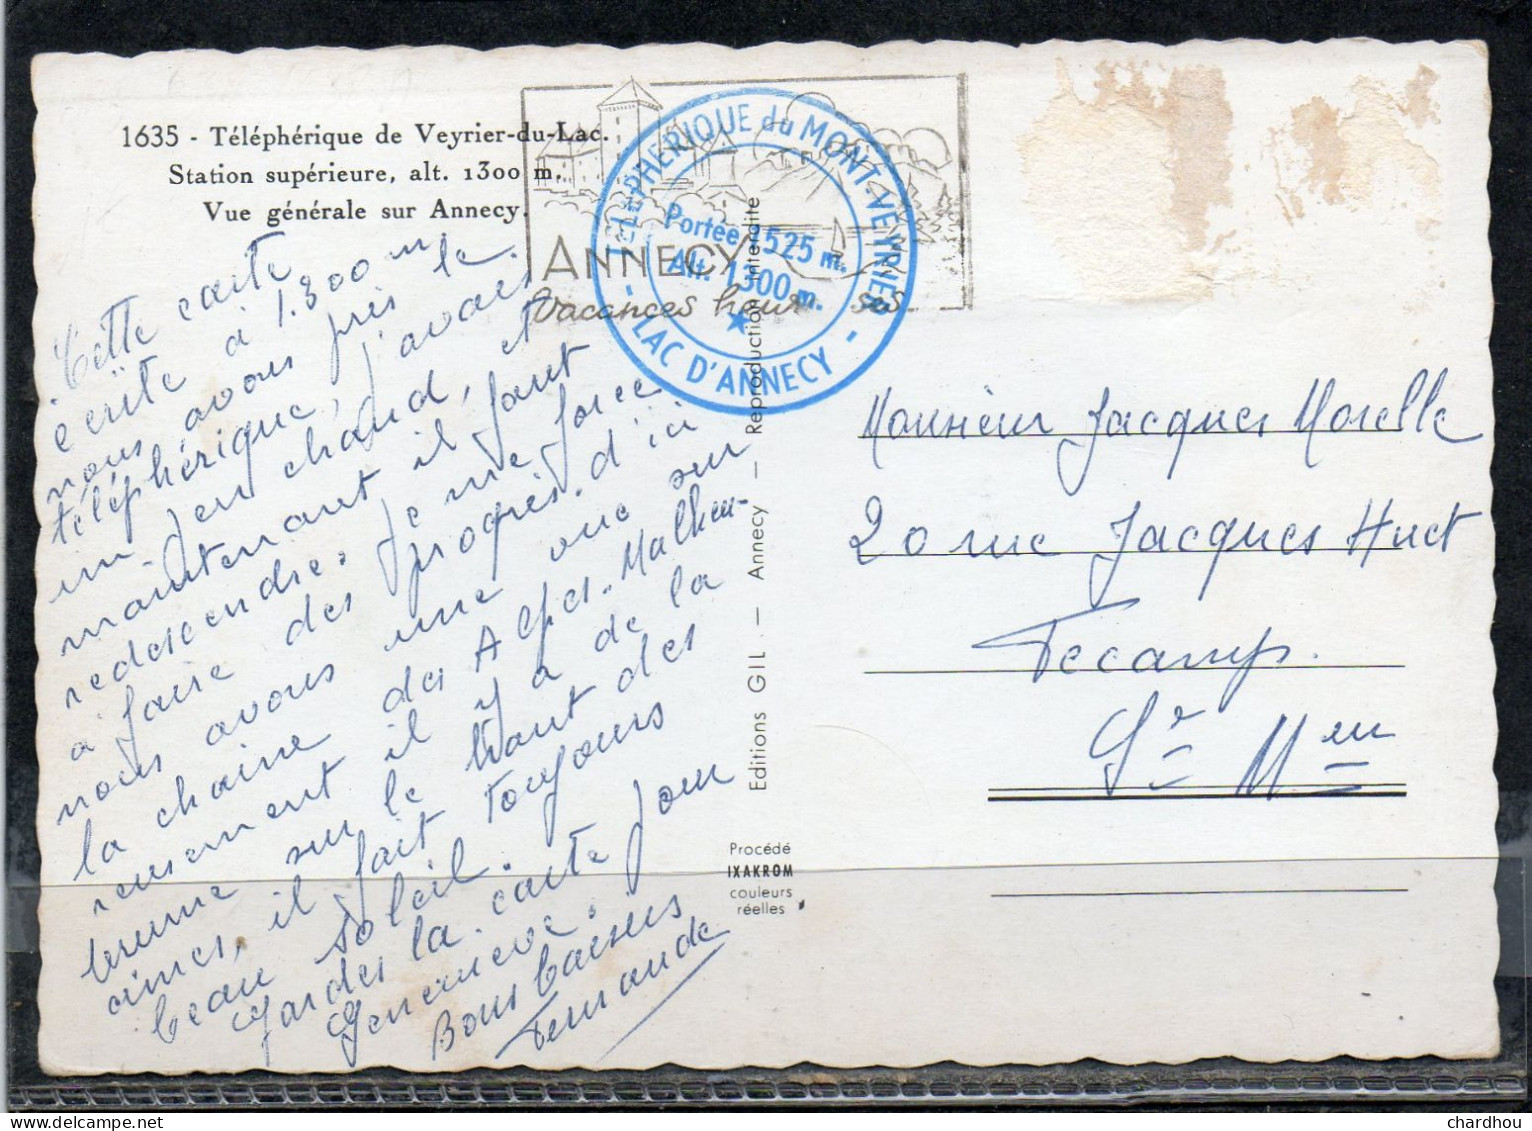 1635 - Téléphérique de Veyrier-du-Lac.
Station supérieure, alt. 1300 m.
Vue générale sur Annecy.
ANNECY
Vacances heur ses
TELEPHERIQUE du MONT-VEYRIER
Portée 1525 m.
Alt. 1300 m.
- LAC D'ANNECY -
Cette carte
écrite à 1.300 m
nous avons pris le
téléphérique, j'avais
un peu chaud, et
maintenant il faut
redescendre. Je me force
à faire des progrès. d'ici
nous avons une vue sur
la chaine des Alpes. Malheu-
reusement il y a de la
brume sur le haut des
cimes, il fait toujours
beau soleil.
Gardes la carte pour
Geneviève.
Bons baisers
Fernande
Monsieur Jacques Morelle
20 rue Jacques Huet
Fecamp.
Sre Meu
Editions GIL. — Annecy — Reproduction interdite
Procédé
IXAKROM
couleurs
réelles
chardhou